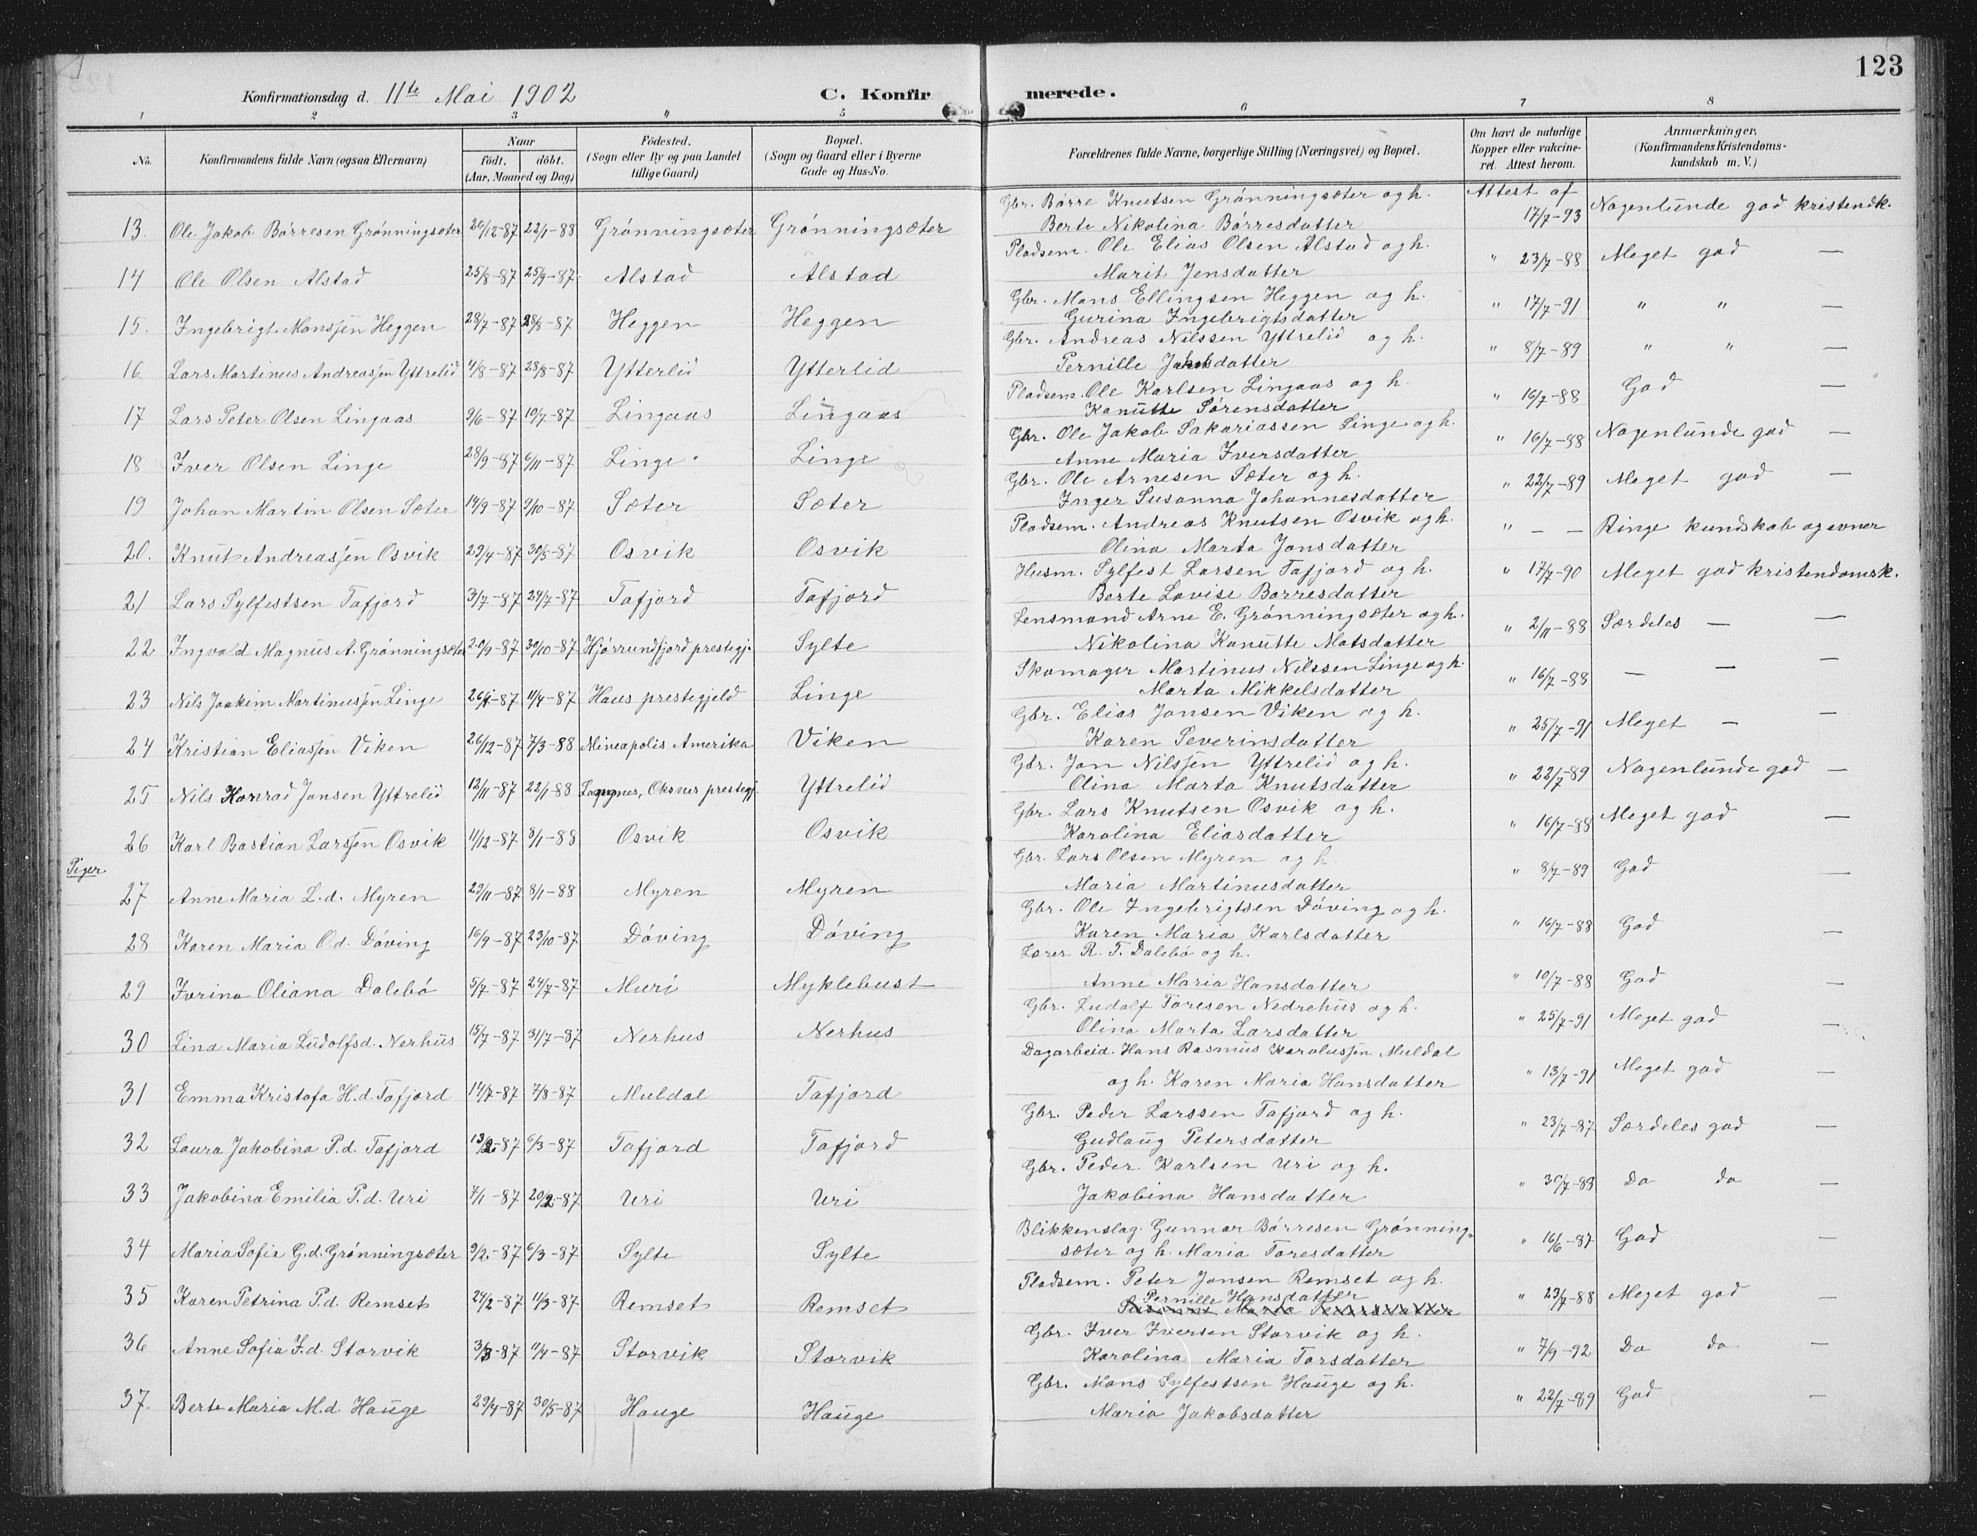 123
Konfirmationsdag d. 11te Mai 1902 C. Konfirmerede.
1 2 3 4 5 6 7 8
No. Konfirmandens fulde Navn (ogsaa Efternavn) Naar født. døbt. (Aar, Maaned og Dag) Fødested. (Sogn eller By og paa Landet tillige Gaard) Bopæl. (Sogn og Gaard eller i Byerne Gade og Hus-No. Forældrenes fulde Navne, borgerlige Stilling (Næringsvei) og Bopæl. Om havt de naturlige Kopper eller vakcineret. Attest herom. Anmærkninger. (Konfirmandens Kristendomskundskab m. V.)
13. Ole Jakob Børresen Grønningsæter 26/12-87 22/1-88 Grønningsæter Grønningsæter Gbr. Børre Knutsen Grønningsæter og h. Attest af 17/7-93 Nogenlunde god kristendk.
Berte Nikolina Børresdatter
14 Ole Olsen Alstad 25/8-87 25/9-87 Alstad Alstad Pladsem. Ole Elias Olsen Alstad og h. " 23/7-88 Meget god —
Marit Jensdatter
15. Ingebrigt Monsjen Heggen 28/7-87 28/8-87 Heggen Heggen Gbr. Mons Ellingsen Heggen og h. " 17/7-91 " " —
Gurina Ingebrigtsdatter
16. Lars Martinus Andreasjen Yttrelid 4/8-87 28/8-87 Ytterlid Ytterlid Gbr. Andreas Nilssen Yttrelid og h. " 8/7-89 " " —
Pernille Jakobsdatter
17 Lars Peter Olsen Lingaas 9/6-87 10/7-87 Lingaas Lingaas Pladsem. Ole Karlsen Lingaas og h. " 16/7-88 God —
Kanutte Sørensdatter
18 Iver Olsen Linge 28/9-87 6/11-87 Linge Linge Gbr. Ole Jakob Sakariassen Linge og h. " 16/7-88 Nogenlunde god —
Anne Maria Iversdatter
19 Johan Martin Olsen Sæter 14/9-87 9/10-87 Sæter Sæter Gbr. Ole Arnesen Sæter og h. " 22/7-89 Meget god —
Inger Susanna Johannesdatter
20. Knut Andreasjen Osvik 29/4-87 30/5-87 Osvik Osvik Pladsem. Andreas Knutsen Osvik og h. " — — Ringe kundskab og evner
Olina Marta Jonsdatter
21 Lars Sylfestsen Tafjord 3/7-87 24/7-87 Tafjord Tafjord Husm. Sylfest Larsen Tafjord og h. " 17/7-90 Meget god kristendomsk.
Berte Lovise Børresdatter
22 Ingvald Magnus A. Grønningsæter 20/9-87 30/10-87 Hjørrundfjord prestegj. Sylte Lensmand Arne E. Grønningsæter og h. " 2/11-88 Særdeles — —
Nikolina Kanutte Matsdatter
23 Nils Joakim Martinusjen Linge 11/4-87 Haus prestegjeld Linge Skomager Martinus Nilssen Linge og h. " 16/7-88 — — —
Marta Mikkelsdatter
24 Kristian Eliasjen Viken 26/12-87 7/3-88 Mineapolis Amerika Viken Gbr. Elias Jonsen Viken og h. " 25/7-91 Meget —
Karen Severinsdatter
25 Nils Konrad Jonsen Yttrelid 12/11-87 22/1-88 Oksnes prestegj. Yttrelid Gbr. Jon Nilsjen Yttrelid og h. " 22/7-89 Nogenlunde god —
Olina Marta Knutsdatter
26 Karl Bastian Larsjen Osvik 11/12-87 8/1-88 Osvik Osvik Gbr. Lars Knutsen Osvik og h. " 16/7-88 Meget god —
Karolina Eliasdatter
Piger
27 Anne Maria L.d. Myren 29/11-87 8/1-88 Myren Myren Gbr. Lars Olsen Myren og h. " 8/7-89 God —
Maria Martinusdatter
28 Karen Maria O.d. Døving 16/9-87 23/10-87 Døving Døving Gbr. Ole Ingebrigtsen Døving og h. " 16/7-88 God —
Karen Maria Karlsdatter
29 Iverina Oliana Dalebø 5/7-87 24/7-87 Muri Myklebust Lærer R. T. Dalebø og h. " 10/7-88 God —
Anne Maria Hansdatter
30 Lina Maria Ludolfsd. Nerhus 15/7-87 31/7-87 Nerhus Nerhus Gbr. Ludolf Toresen Nedrehus og h. " 25/7-91 Meget god —
Olina Marta Larsdatter
31 Emma Kristofa H.d. Tafjord 14/7-87 7/8-87 Muldal Tafjord Dagarbeid. Hans Rasmus Karolusjen Muldal " 13/7-91 Meget god —
og h. Karen Maria Hansdatter
32 Laura Jakobina P.d. Tafjord 13/2-87 6/3-87 Tafjord Tafjord Gbr. Peder Larssen Tafjord og h. " 23/7-87 Særdeles god —
Gudlaug Petersdatter
33 Jakobina Emilia P.d. Uri 7/1-87 20/2-87 Uri Uri Gbr. Peder Karlsen Uri og h. " 30/7-89 Do do —
Jakobina Hansdatter
34 Maria Sofie G.d. Grønningsæter 9/2-87 6/3-87 Sylte Sylte Blikkenslag. Gunnar Børresen Grønning- " 16/6-87 God —
sæter og h. Maria Toresdatter
35 Karen Petrina P.d. Remset 24/2-87 11/3-87 Remset Remset Pladsem. Peter Jonsen Remset og h. " 23/7-88 Meget god —
Pernille Hansdatter
36 Anne Sofia I.d. Storvik 3/3-87 11/4-87 Storvik Storvik Gbr. Iver Iversen Storvik og h. " 7/9-92 Do do —
Karolina Maria Torsdatter
37. Berte Maria M.d. Hauge 29/4-87 30/5-87 Hauge Hauge Gbr. Mons Sylfestsen Hauge og h. " 22/7-89 God —
Maria Jakobsdatter